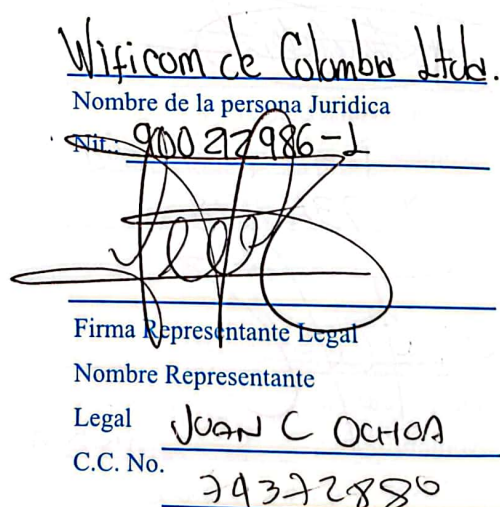 Wificom de Colombia Ltda.
Nombre de la persona Juridica
Nit.: 900272986-1
Firma Representante Legal
Nombre Representante
Legal JUAN C OCHOA
C.C. No. 79372880